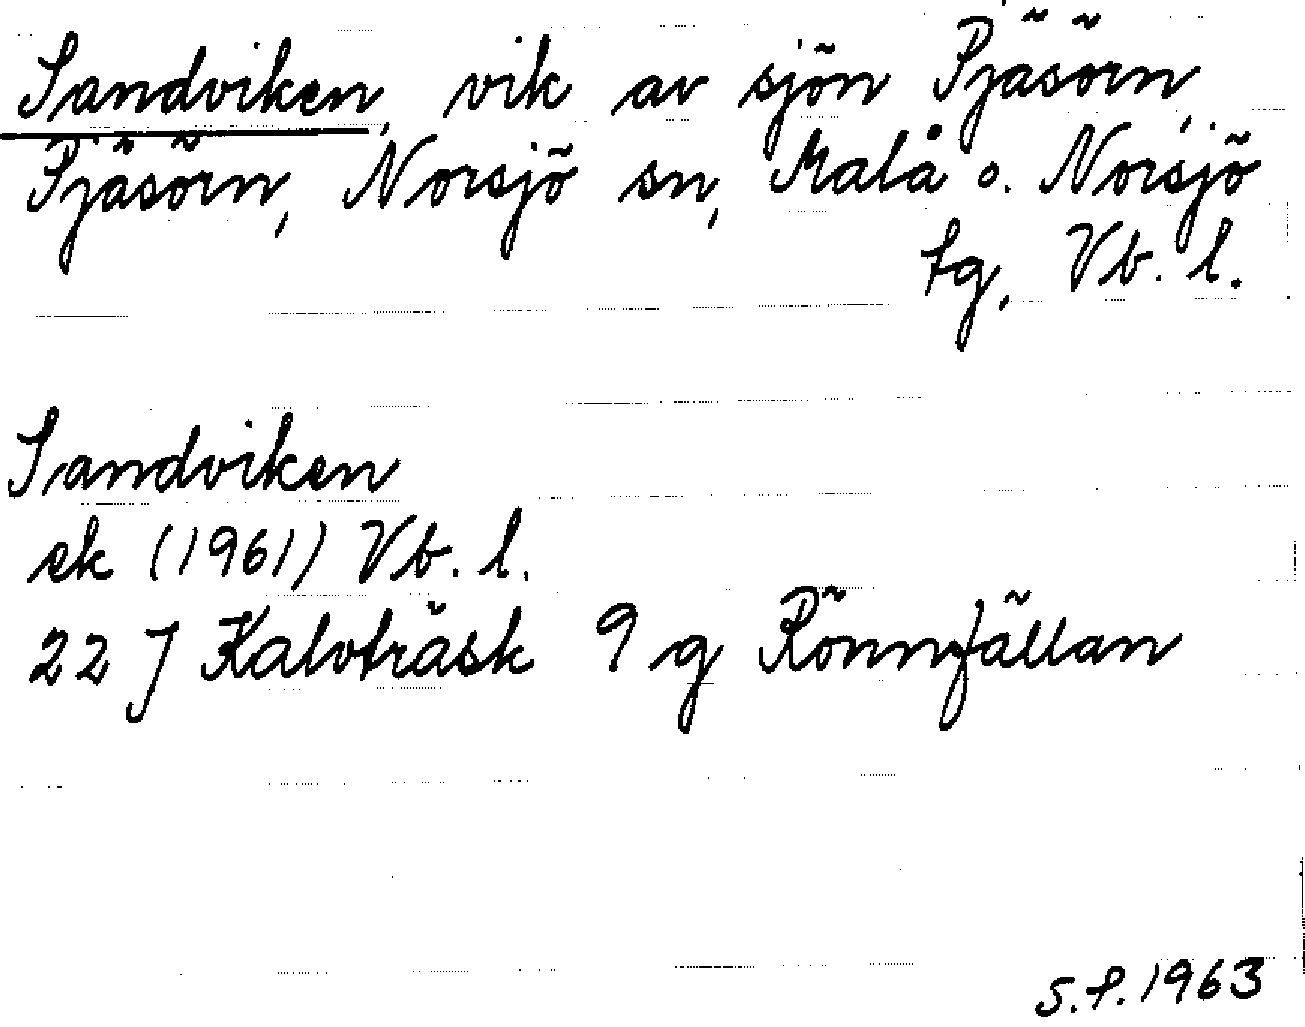 Sandviken, vik av sjön Pjäsörn,
Pjäsörn, Norsjö sn, Malå o. Norsjö
tg, Vb. l.
Sandviken
ek (1961) Vb. l.
22 J Kalvträsk 9 g Rönnfällan
S.P. 1963